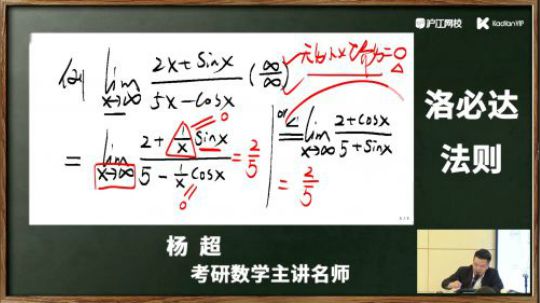 沪江网校 KaoYanVIP
例 lim x→∞ 2x+Sinx / 5x-Cosx (∞/∞)
= lim x→∞ 2+ 1/x Sinx / 5- 1/x Cosx = 2/5
0
0
lim x→∞ 2+Cosx / 5+Sinx
= 2/5
洛必达
法则
杨 超
考研数学主讲名师